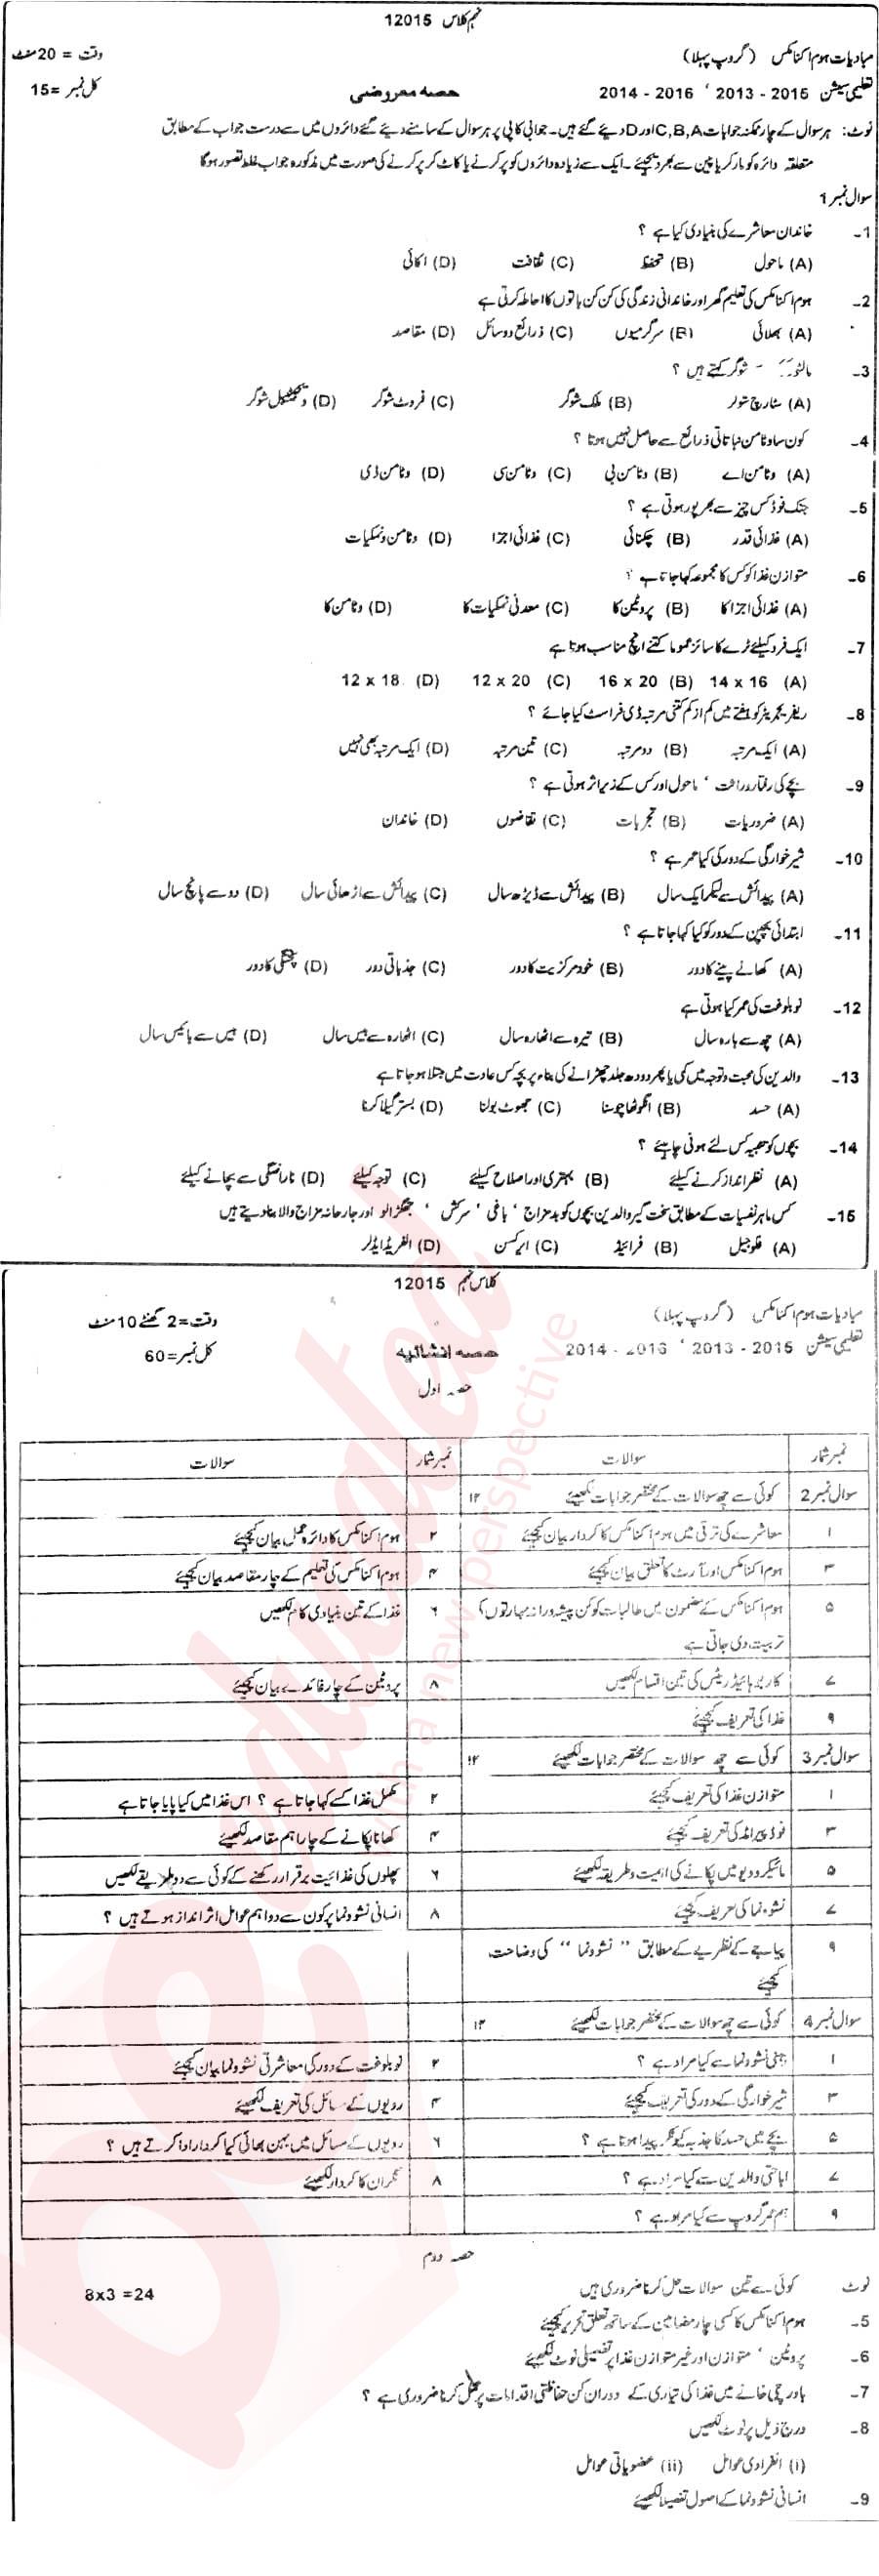 نہم کلاس 12015
مبادیات ہوم اکنامکس (گروپ پہلا) وقت = 20 منٹ
تعلیمی سیشن 2015 - 2013 ، 2016 - 2014 حصہ معروضی کل نمبر = 15
نوٹ: ہر سوال کے چار ممکنہ جوابات C,B,A اور D دیئے گئے ہیں۔ جوابی کاپی پر ہر سوال کے سامنے دیئے گئے دائروں میں سے درست جواب کے مطابق
متعلقہ دائرہ کو مارکر یا پین سے بھر دیجئے۔ ایک سے زیادہ دائروں کو پر کرنے یا کاٹ کر پر کرنے کی صورت میں مذکورہ جواب غلط تصور ہوگا
سوال نمبر 1
1- خاندان معاشرے کی بنیادی کیا ہے ؟
(A) ماحول (B) تحفظ (C) ثقافت (D) اکائی
2- ہوم اکنامکس کی تعلیم گھر اور خاندانی زندگی کی کن کن باتوں کا احاطہ کرتی ہے
(A) بھلائی (B) سرگرمیوں (C) ذرائع و وسائل (D) مقاصد
3- شوگر کہتے ہیں ؟
(A) سٹارچ شوگر (B) ملک شوگر (C) فروٹ شوگر (D) ویجیٹیبل شوگر
4- کون سا وٹامن نباتاتی ذرائع سے حاصل نہیں ہوتا ؟
(A) وٹامن اے (B) وٹامن بی (C) وٹامن سی (D) وٹامن ڈی
5- جنک فوڈ کس چیز سے بھرپور ہوتی ہے ؟
(A) غذائی قدر (B) چکنائی (C) غذائی اجزا (D) وٹامن و نمکیات
6- متوازن غذا کو کس کا مجموعہ کہا جاتا ہے ؟
(A) غذائی اجزا کا (B) پروٹین کا (C) معدنی نمکیات کا (D) وٹامن کا
7- ایک فرد کیلئے ٹرے کا سائز عموما کتنے انچ مناسب ہوتا ہے
(A) 14 x 16 (B) 16 x 20 (C) 12 x 20 (D) 12 x 18
8- ریفریجریٹر کو ہفتے میں کم از کم کتنی مرتبہ ڈی فراسٹ کیا جائے ؟
(A) ایک مرتبہ (B) دو مرتبہ (C) تین مرتبہ (D) ایک مرتبہ بھی نہیں
9- بچے کی رفتار وراثت ، ماحول اور کس کے زیر اثر ہوتی ہے ؟
(A) ضروریات (B) تجربات (C) تقاضوں (D) خاندان
10- شیر خوارگی کے دور کی کیا عمر ہے ؟
(A) پیدائش سے لیکر ایک سال (B) پیدائش سے ڈیڑھ سال (C) پیدائش سے اڑھائی سال (D) دو سے پانچ سال
11- ابتدائی بچپن کے دور کو کیا کہا جاتا ہے ؟
(A) کھانے پینے کا دور (B) خود مرکزیت کا دور (C) جذباتی دور (D) پختگی کا دور
12- نو بلوغت کی عمر کیا ہوتی ہے
(A) چھ سے بارہ سال (B) تیرہ سے اٹھارہ سال (C) اٹھارہ سے بیس سال (D) بیس سے بائیس سال
13- والدین کی محبت و توجہ میں کمی یا پھر دودھ جلد چھڑانے کی بناء پر بچہ کس عادت میں مبتلا ہو جاتا ہے
(A) حسد (B) انگوٹھا چوسنا (C) جھوٹ بولنا (D) بستر گیلا کرنا
14- بچوں کو تنبیہہ کس لئے ہونی چاہیئے ؟
(A) نظر انداز کرنے کیلئے (B) بہتری اور اصلاح کیلئے (C) توجہ کیلئے (D) ناراضگی سے بچانے کیلئے
15- کس ماہر نفسیات کے مطابق سخت گیر والدین بچوں کو بد مزاج ، باغی ، سرکش ، جھگڑالو اور جارحانہ مزاج والا بنا دیتے ہیں
(A) فلوجیل (B) فرائیڈ (C) ایرکسن (D) الفریڈ ایڈلر
کلاس نہم 12015
مبادیات ہوم اکنامکس (گروپ پہلا) وقت = 2 گھنٹے 10 منٹ
تعلیمی سیشن 2015 - 2013 ، 2016 - 2014 حصہ انشائیہ کل نمبر = 60
حصہ اول
نمبر شمار سوالات نمبر شمار سوالات
سوال نمبر 2 کوئی سے چھ سوالات کے مختصر جوابات لکھیئے ۱۲
۱ معاشرے کی ترقی میں ہوم اکنامکس کا کردار بیان کیجئے ۲ ہوم اکنامکس کا دائرہ عمل بیان کیجئے
۳ ہوم اکنامکس اور آرٹ کا تعلق بیان کیجئے ۴ ہوم اکنامکس کی تعلیم کے چار مقاصد بیان کیجئے
۵ ہوم اکنامکس کے مضمون میں طالبات کو کن پیشہ ورانہ مہارتوں کی ۶ غذا کے تین بنیادی کام لکھیں
تربیت دی جاتی ہے
۷ کاربوہائیڈریٹس کی تین اقسام لکھیں ۸ پروٹین کے چار فائدے بیان کیجئے
۹ غذا کی تعریف کیجئے
سوال نمبر 3 کوئی سے چھ سوالات کے مختصر جوابات لکھیئے ۱۲
۱ متوازن غذا کی تعریف کیجئے ۲ مکمل غذا کسے کہا جاتا ہے ؟ اس غذا میں کیا پایا جاتا ہے
۳ فوڈ پیرامڈ کی تعریف کیجئے ۴ کھانا پکانے کے چار اہم مقاصد لکھیئے
۵ مائیکروویو میں پکانے کی اہمیت و طریقہ لکھیئے ۶ پھلوں کی غذائیت برقرار رکھنے کے کوئی سے دو طریقے لکھیں
۷ نشوونما کی تعریف کیجئے ۸ انسانی نشوونما پر کون سے دو اہم عوامل اثر انداز ہوتے ہیں ؟
۹ پیاجے کے نظریے کے مطابق " نشوونما " کی وضاحت
کیجئے
سوال نمبر 4 کوئی سے چھ سوالات کے مختصر جوابات لکھیئے ۱۲
۱ ذہنی نشوونما سے کیا مراد ہے ؟ ۲ نو بلوغت کے دور کی معاشرتی نشوونما بیان کیجئے
۳ شیر خوارگی کے دور کی تعریف کیجئے ۴ رویوں کے مسائل کی تعریف لکھیئے
۵ بچے میں حسد کا جذبہ کیونکر پیدا ہوتا ہے ؟ ۶ رویوں کے مسائل میں بہن بھائی کیا کردار ادا کرتے ہیں ؟
۷ اباحتی والدین سے کیا مراد ہے ؟ ۸ نگران کا کردار لکھیئے
۹ ہم عمر گروپ سے کیا مراد ہے ؟
حصہ دوم
نوٹ کوئی سے تین سوالات حل کرنا ضروری ہیں 8x3 =24
5- ہوم اکنامکس کا کسی چار مضامین کے ساتھ تعلق تحریر کیجئے
6- پروٹین ، متوازن اور غیر متوازن غذا پر تفصیلی نوٹ لکھیئے
7- باورچی خانے میں غذا کی تیاری کے دوران کن حفاظتی اقدامات پر عمل کرنا ضروری ہے ؟
8- درج ذیل پر نوٹ لکھیں
(i) انفرادی عوامل (ii) عضویاتی عوامل
9- انسانی نشوونما کے اصول تفصیلاً لکھیئے